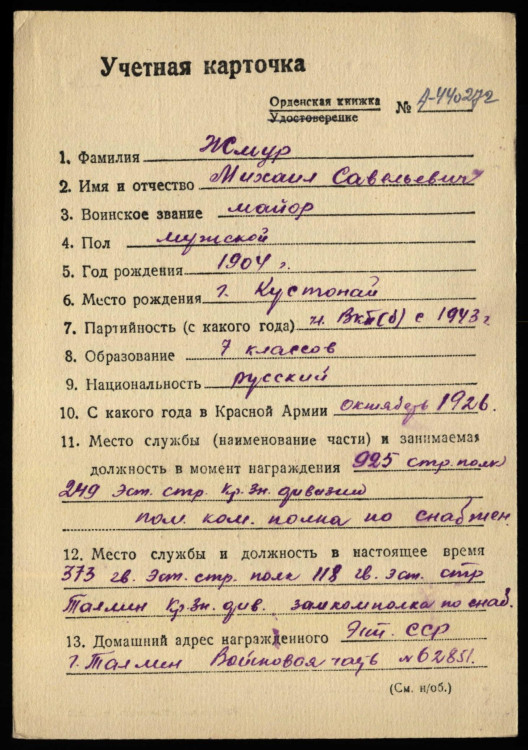 Учетная карточка
Орденская книжка № А-440272
Удостоверение
1. Фамилия Жмур
2. Имя и отчество Михаил Савельевич
3. Воинское звание майор
4. Пол мужской
5. Год рождения 1904 г.
6. Место рождения г. Кустонай
7. Партийность (с какого года) чл. ВКП(б) с 1943 г.
8. Образование 7 классов
9. Национальность русский
10. С какого года в Красной Армии октябрь 1926.
11. Место службы (наименование части) и занимаемая
должность в момент награждения 925 стр. полк
249 Эст. стр. Кр. Зн. дивизии
пом. ком. полка по снабжен.
12. Место службы и должность в настоящее время
373 гв. Эст. стр. полк 118 гв. Эст. стр
Таллин Кр. Зн. див. замкомполка по снаб.
13. Домашний адрес награжденного Эст. ССР
г. Таллин Войсковая часть №62851.
(См. н/об.)